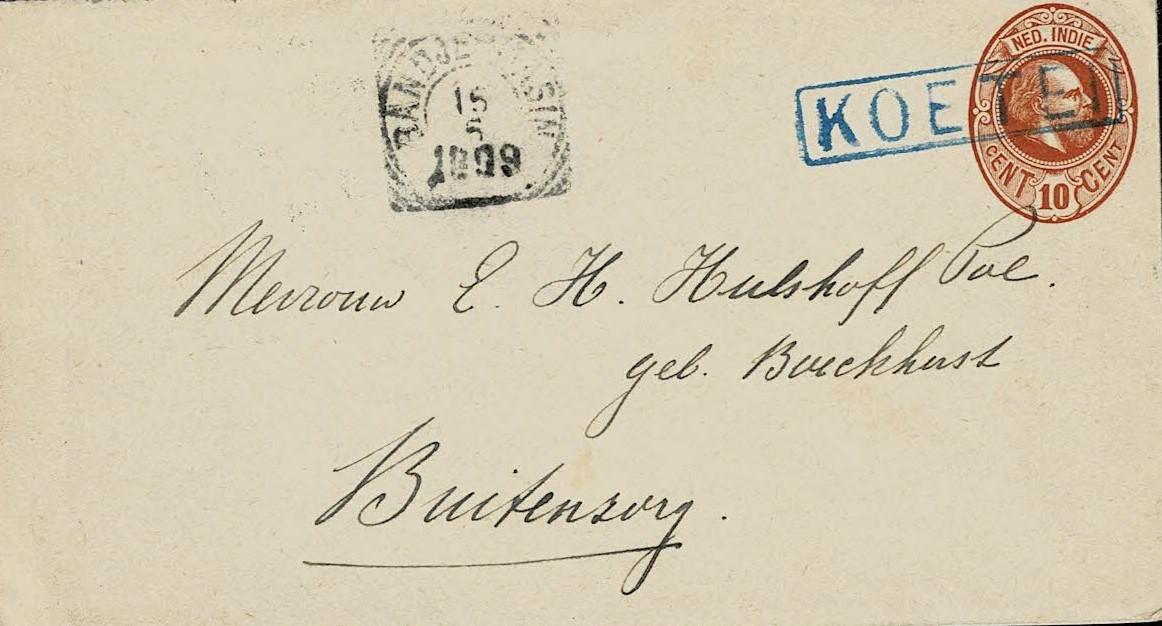 BANDJERMASIN
15
5
1899
KOETEI
NED. INDIE
CENT 10 CENT
Mevrouw E. H. Hulshoff Pol.
geb. Boeckhorst
Buitenzorg.